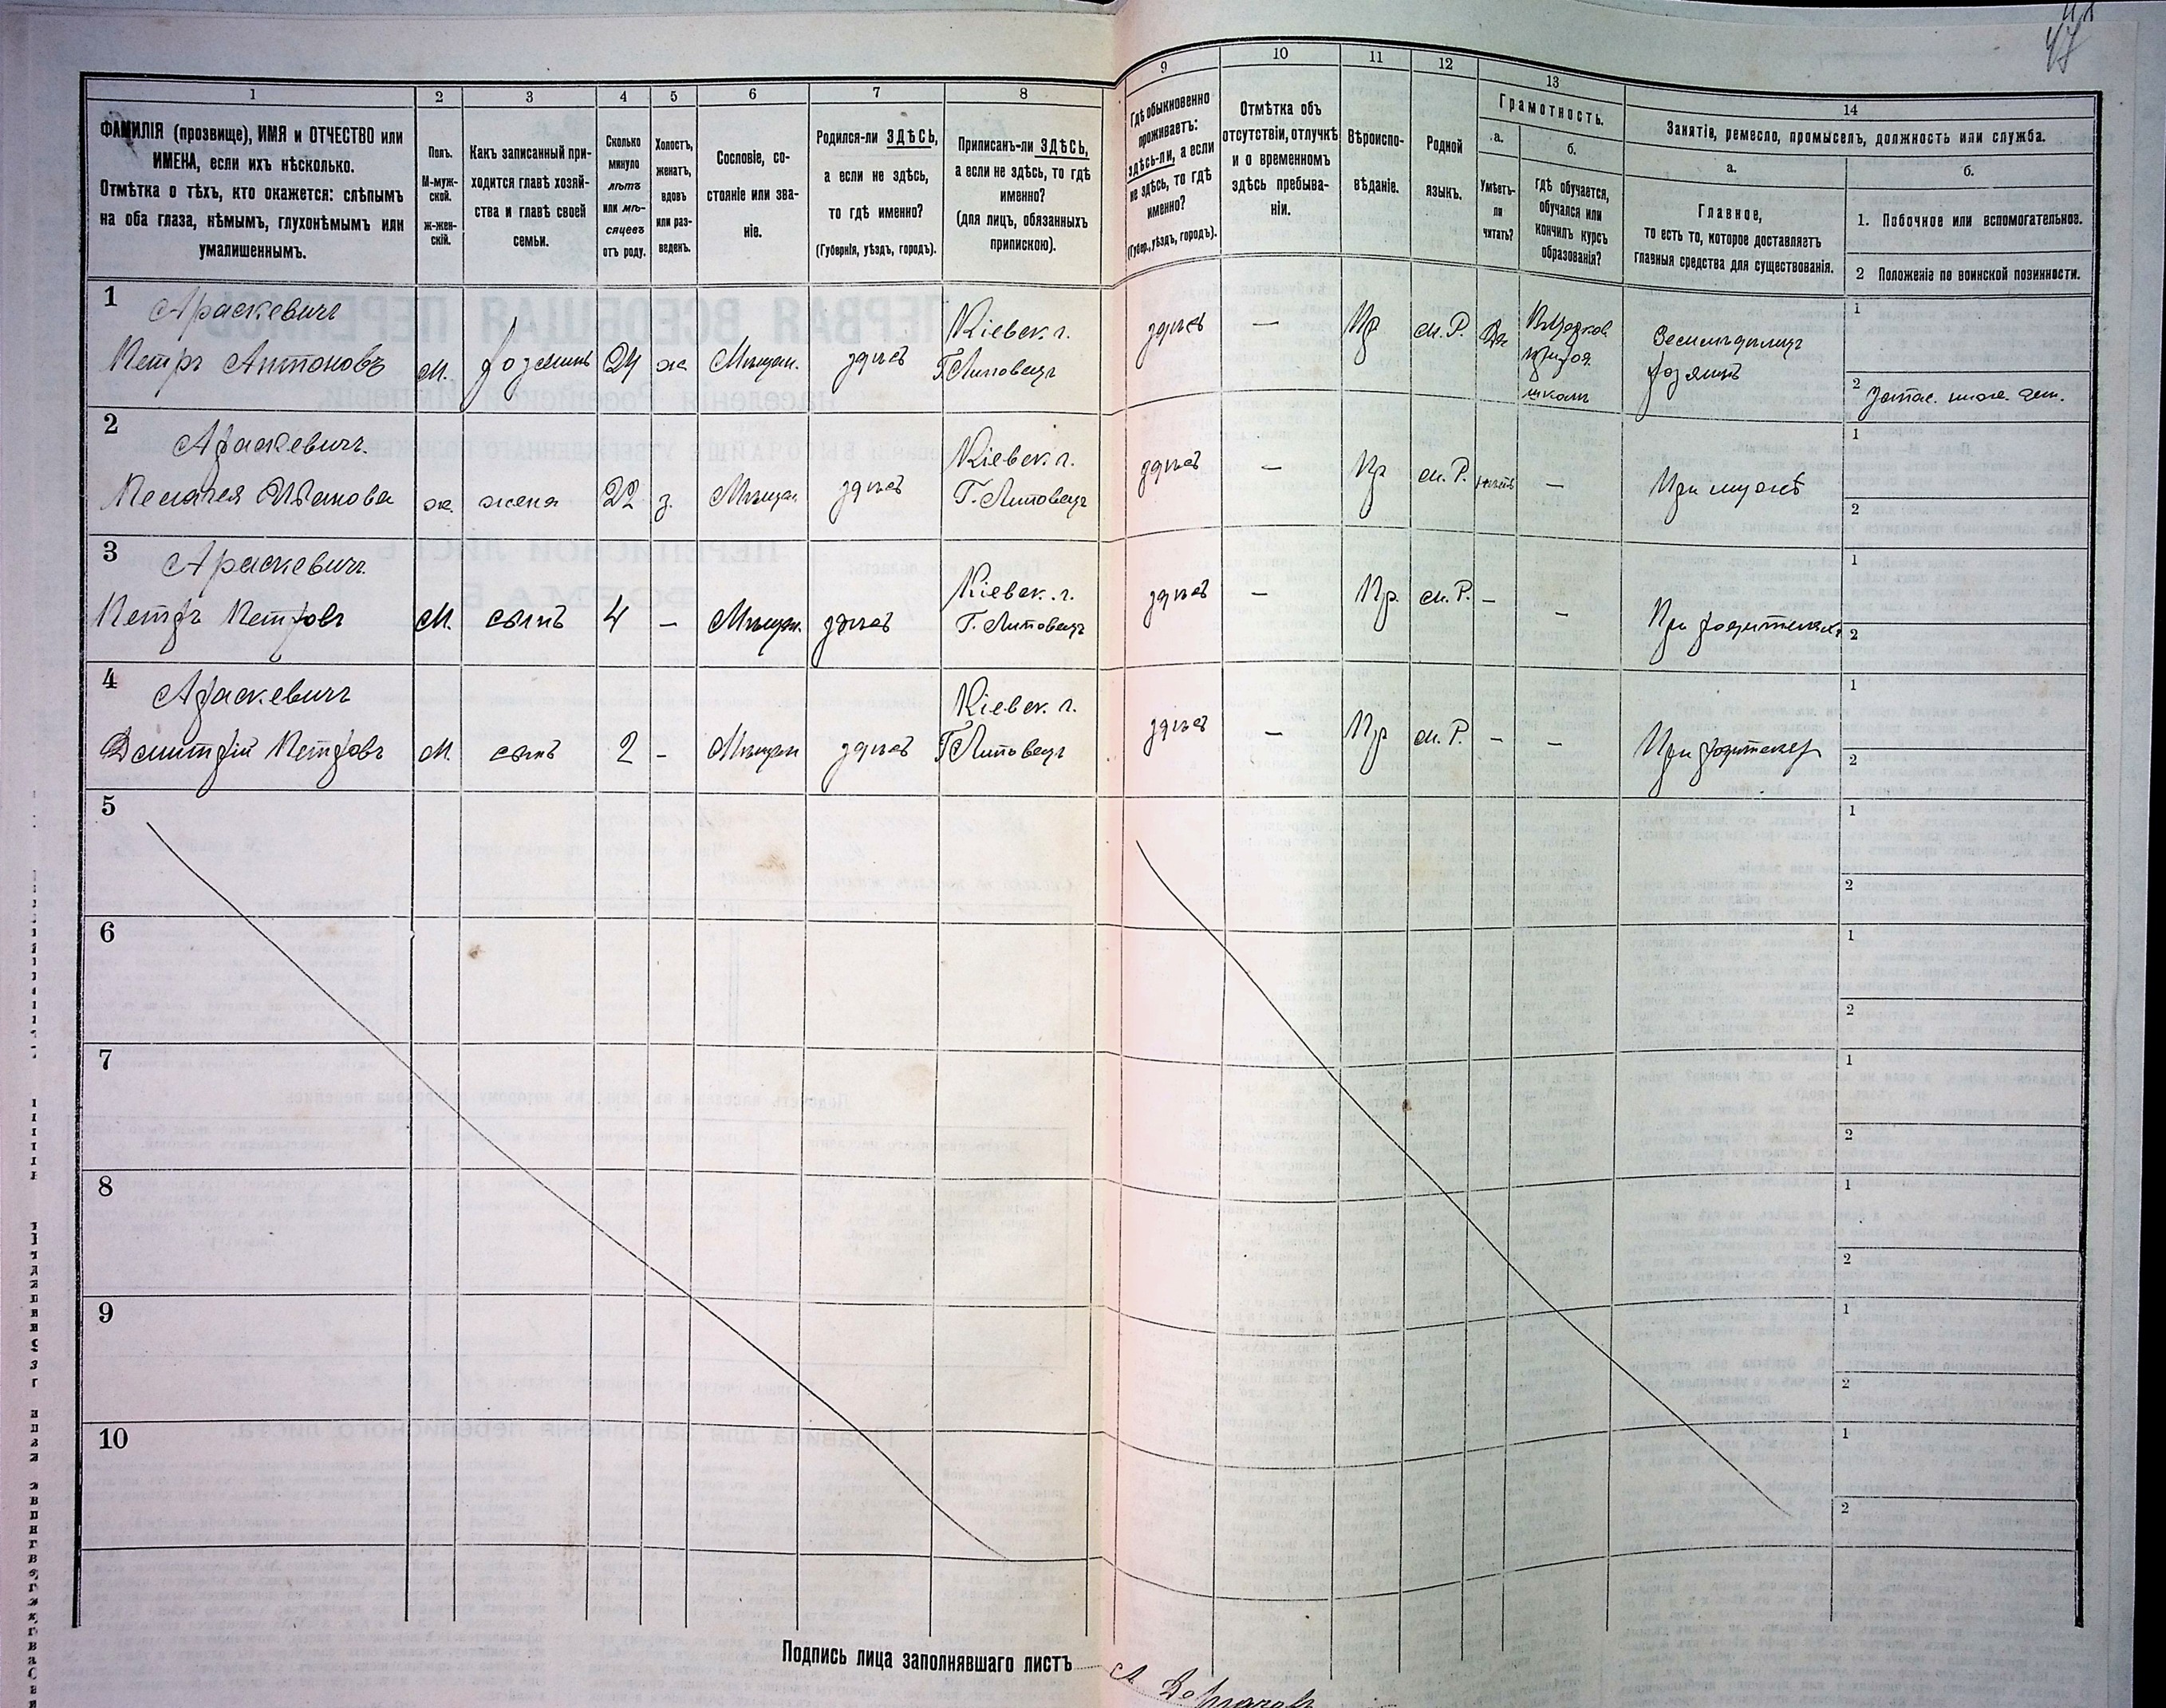 47
1
2
3
4
5
6
7
8
9
10
11
12
13
14
ФАМИЛІЯ (прозвище), ИМЯ и ОТЧЕСТВО или
ИМЕНА, если ихъ нѣсколько.
Отмѣтка о тѣхъ, кто окажется: слѣпымъ
на оба глаза, нѣмымъ, глухонѣмымъ или
умалишеннымъ.
Полъ.
М-муж-
ской.
ж-жен-
скій.
Какъ записанный при-
ходится главѣ хозяй-
ства и главѣ своей
семьи.
Сколько
минуло
лѣтъ
или мѣ-
сяцевъ
отъ роду.
Холостъ,
женатъ,
вдовъ
или раз-
веденъ.
Сословіе, со-
стояніе или зва-
ніе.
Родился-ли ЗДѢСЬ,
а если не здѣсь,
то гдѣ именно?
(Губернія, уѣздъ, городъ).
Приписанъ-ли ЗДѢСЬ,
а если не здѣсь, то гдѣ
именно?
(для лицъ, обязанныхъ
припискою).
Гдѣ обыкновенно
проживаетъ:
здѣсь-ли, а если
не здѣсь, то гдѣ
именно?
(Губер., уѣздъ, городъ).
Отмѣтка объ
отсутствіи, отлучкѣ
и о временномъ
здѣсь пребыва-
ніи.
Вѣроиспо-
вѣданіе.
Родной
языкъ.
Грамотность.
а.
Умѣетъ-
ли
читать?
б.
гдѣ обучается,
обучался или
кончилъ курсъ
образованія?
Занятіе, ремесло, промыселъ, должность или служба.
а.
Главное,
то есть то, которое доставляетъ
главныя средства для существованія.
б.
1. Побочное или вспомогательное.
2 Положеніе по воинской повинности.
1 Араскевичъ
Петръ Антоновъ М. хозяинъ 24 ж Мѣщан. здѣсь Кіевск. г.
Г. Липовецъ здѣсь — Пр м. Р. Да
школѣ
хозяинъ
1
2
2 Араскевичъ.
Пелагея Иванова ж. жена 22 з. Мѣщан. здѣсь Кіевск. г.
Г. Липовецъ здѣсь — Пр м. Р. нѣтъ — При мужѣ
1
2
3 Араскевичъ
Петръ Петровъ М. сынъ 4 — Мѣщан. здѣсь Кіевск. г.
Г. Липовецъ здѣсь — Пр. м. Р. — — При родителяхъ
1
2
4 Араскевичъ
Дмитрій Петровъ М. сынъ 2 - Мѣщан здѣсь Кіевск. г.
Г. Липовецъ здѣсь — Пр м. Р. — —
1
2
5
1
2
6
1
2
7
1
2
8
1
2
9
1
2
10
1
2
Подпись лица заполнявшаго листъ